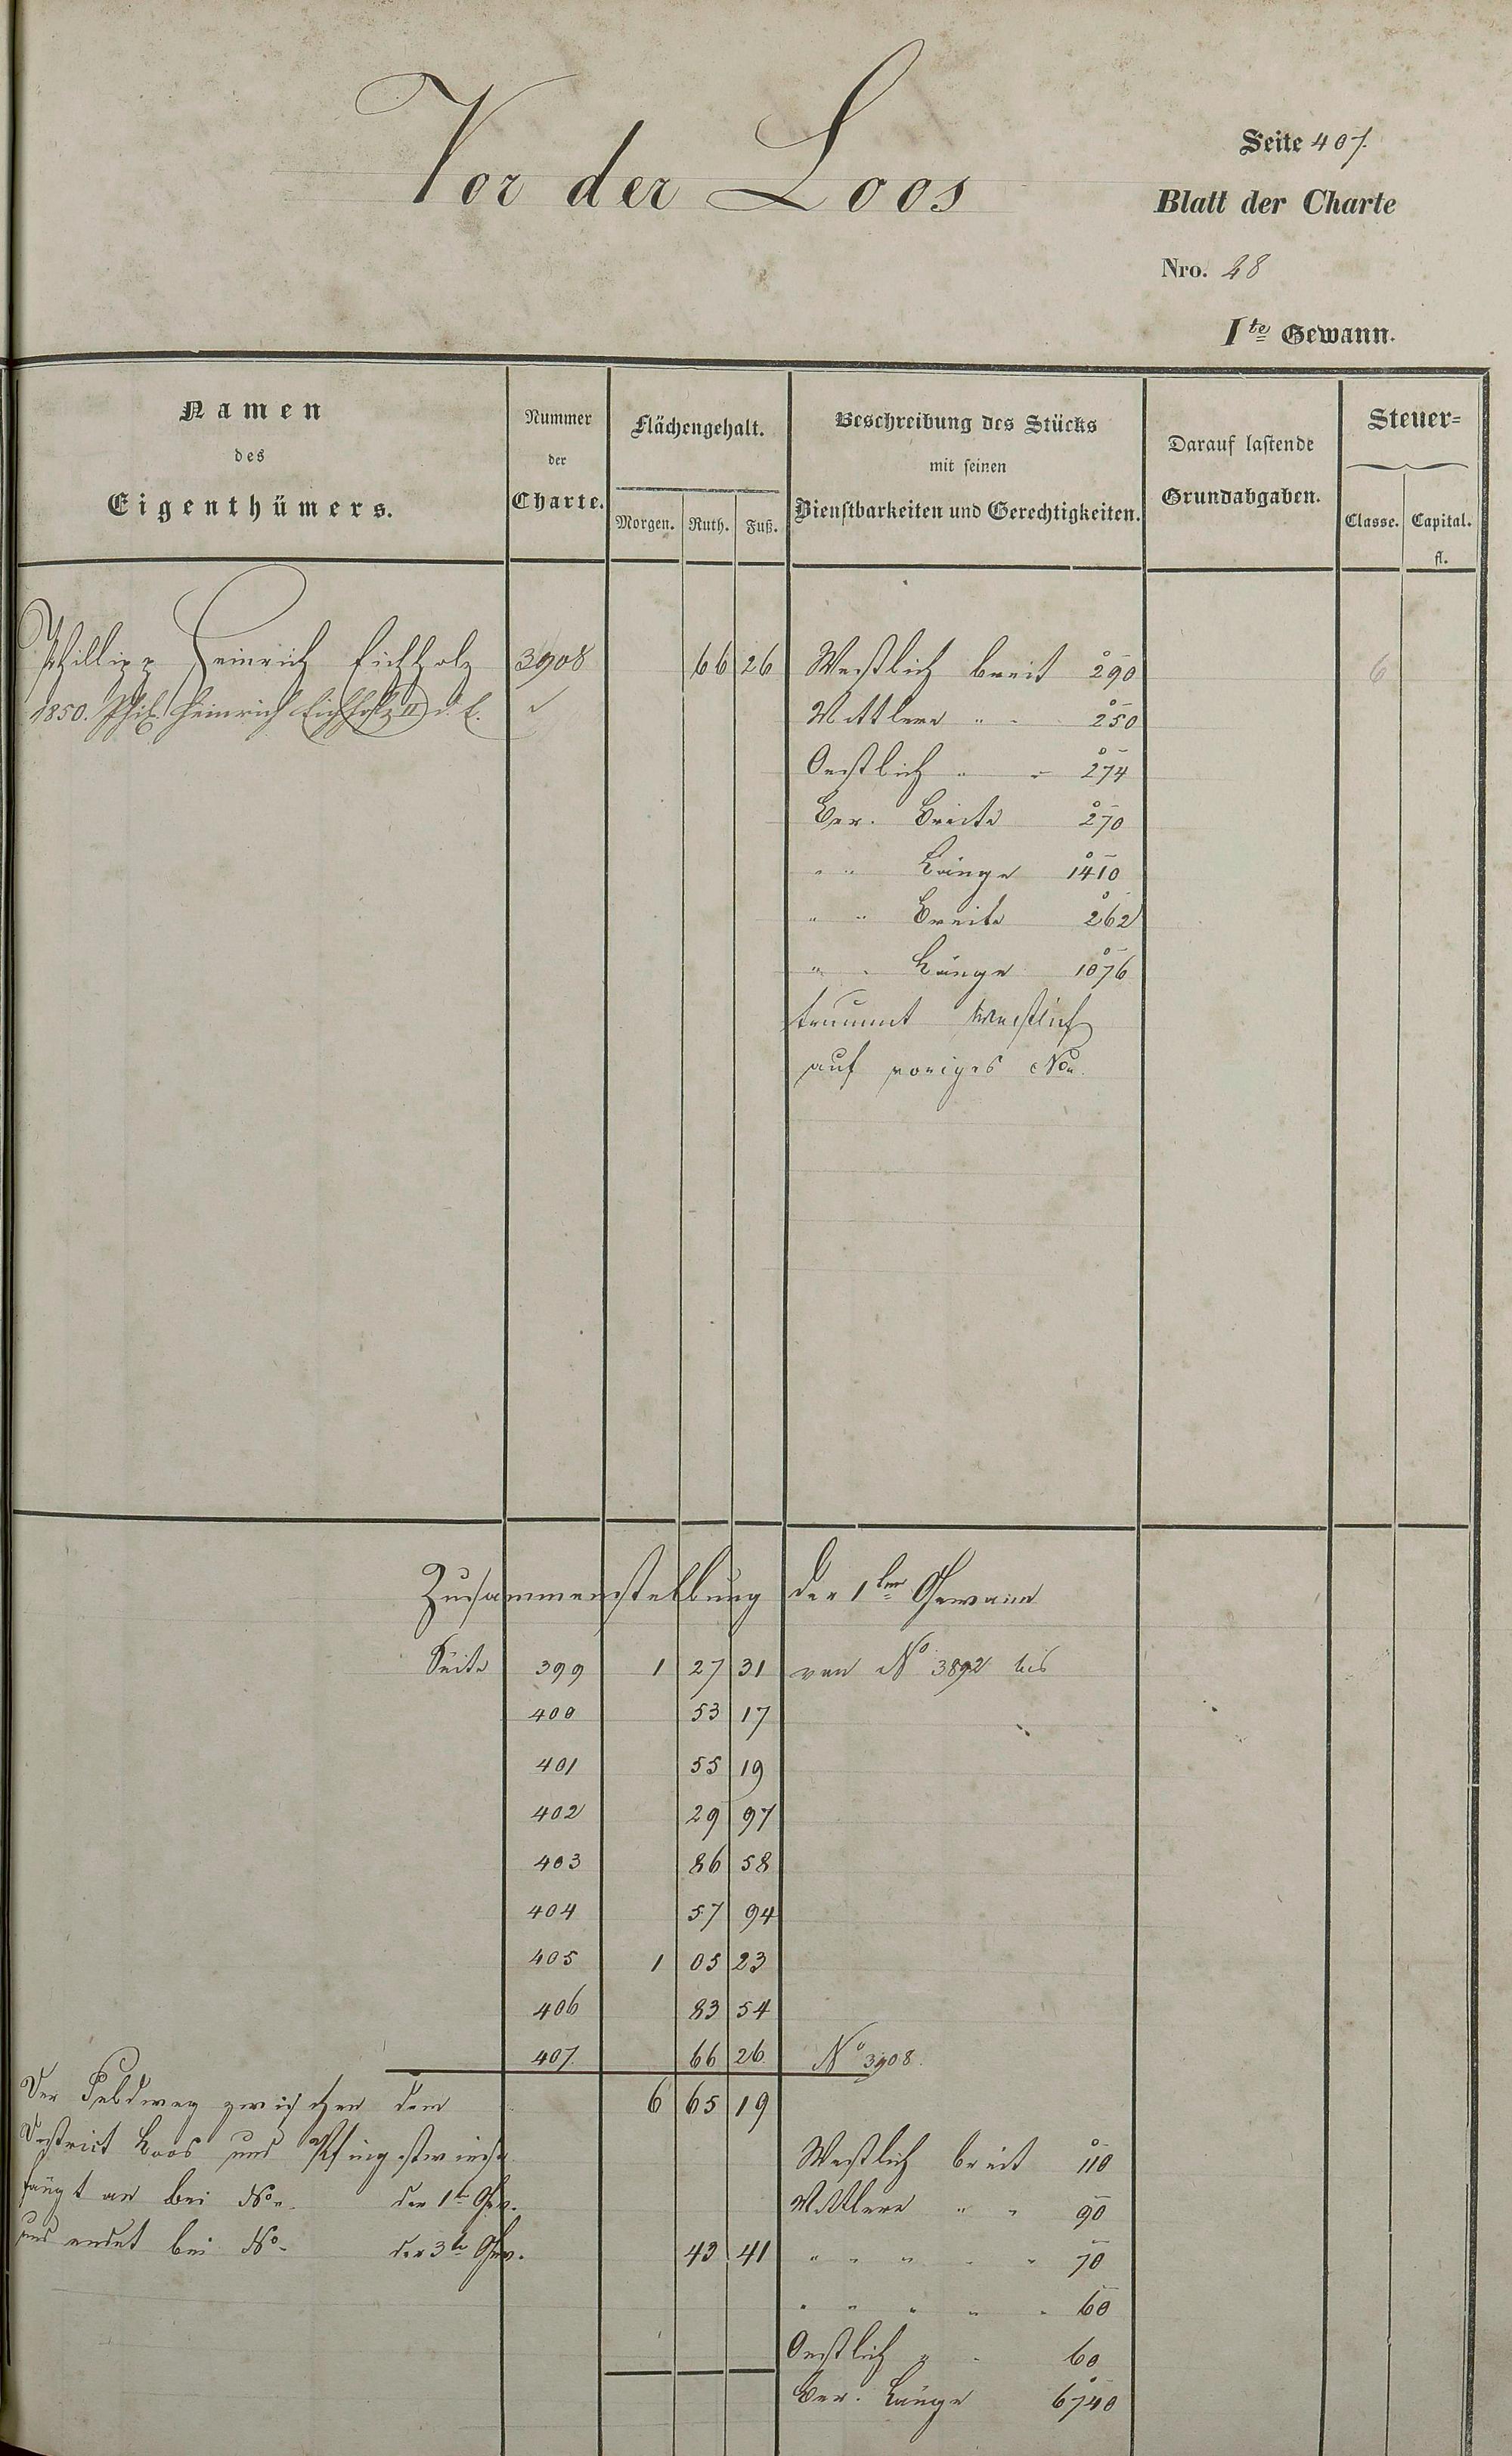 Vor der Loos
Seite 407.
Blatt der Charte
Nro. 28
Ite Gewann.
Namen
des
Eigenthümers.
Nummer
der
Charte.
Flächengehalt.
Morgen. Ruth. Fuß.
Beschreibung des Stücks
mit seinen
Dienstbarkeiten und Gerechtigkeiten.
Darauf lastende
Grundabgaben.
Steuer=
Classe. Capital.
fl.
Phillipp Heinrich Eichholz 3908 66 26 Westlich breit 290 6
1850. Phil. Heinrich Eichholz II d. E. Mittlere " " 250
Oestlich " " 274
Ber. Breite 270
" " Länge 1410
" " Breite 262
" " Länge 1076
krummt westlich
auf voriges No.
Zusammenstellung der 1ten Gewann
Seite 399 1 27 31 von No 3892 bis
400 53 17
401 55 19
402 29 97
403 86 58
404 57 94
405 1 05 23
406 83 54
407. 66 26 No 3908.
6 65 19
Der Feldweg zwischen dem
District Loos und Pfingstwiese Westlich breit 110
fängt an bei No. der 1te Gew. Mittlere " " 90
und endet bei No. der 3te Gew. 43 41 " " " " " 70
" " " " " 60
Oestlich " " 60
Ber. Länge 6740